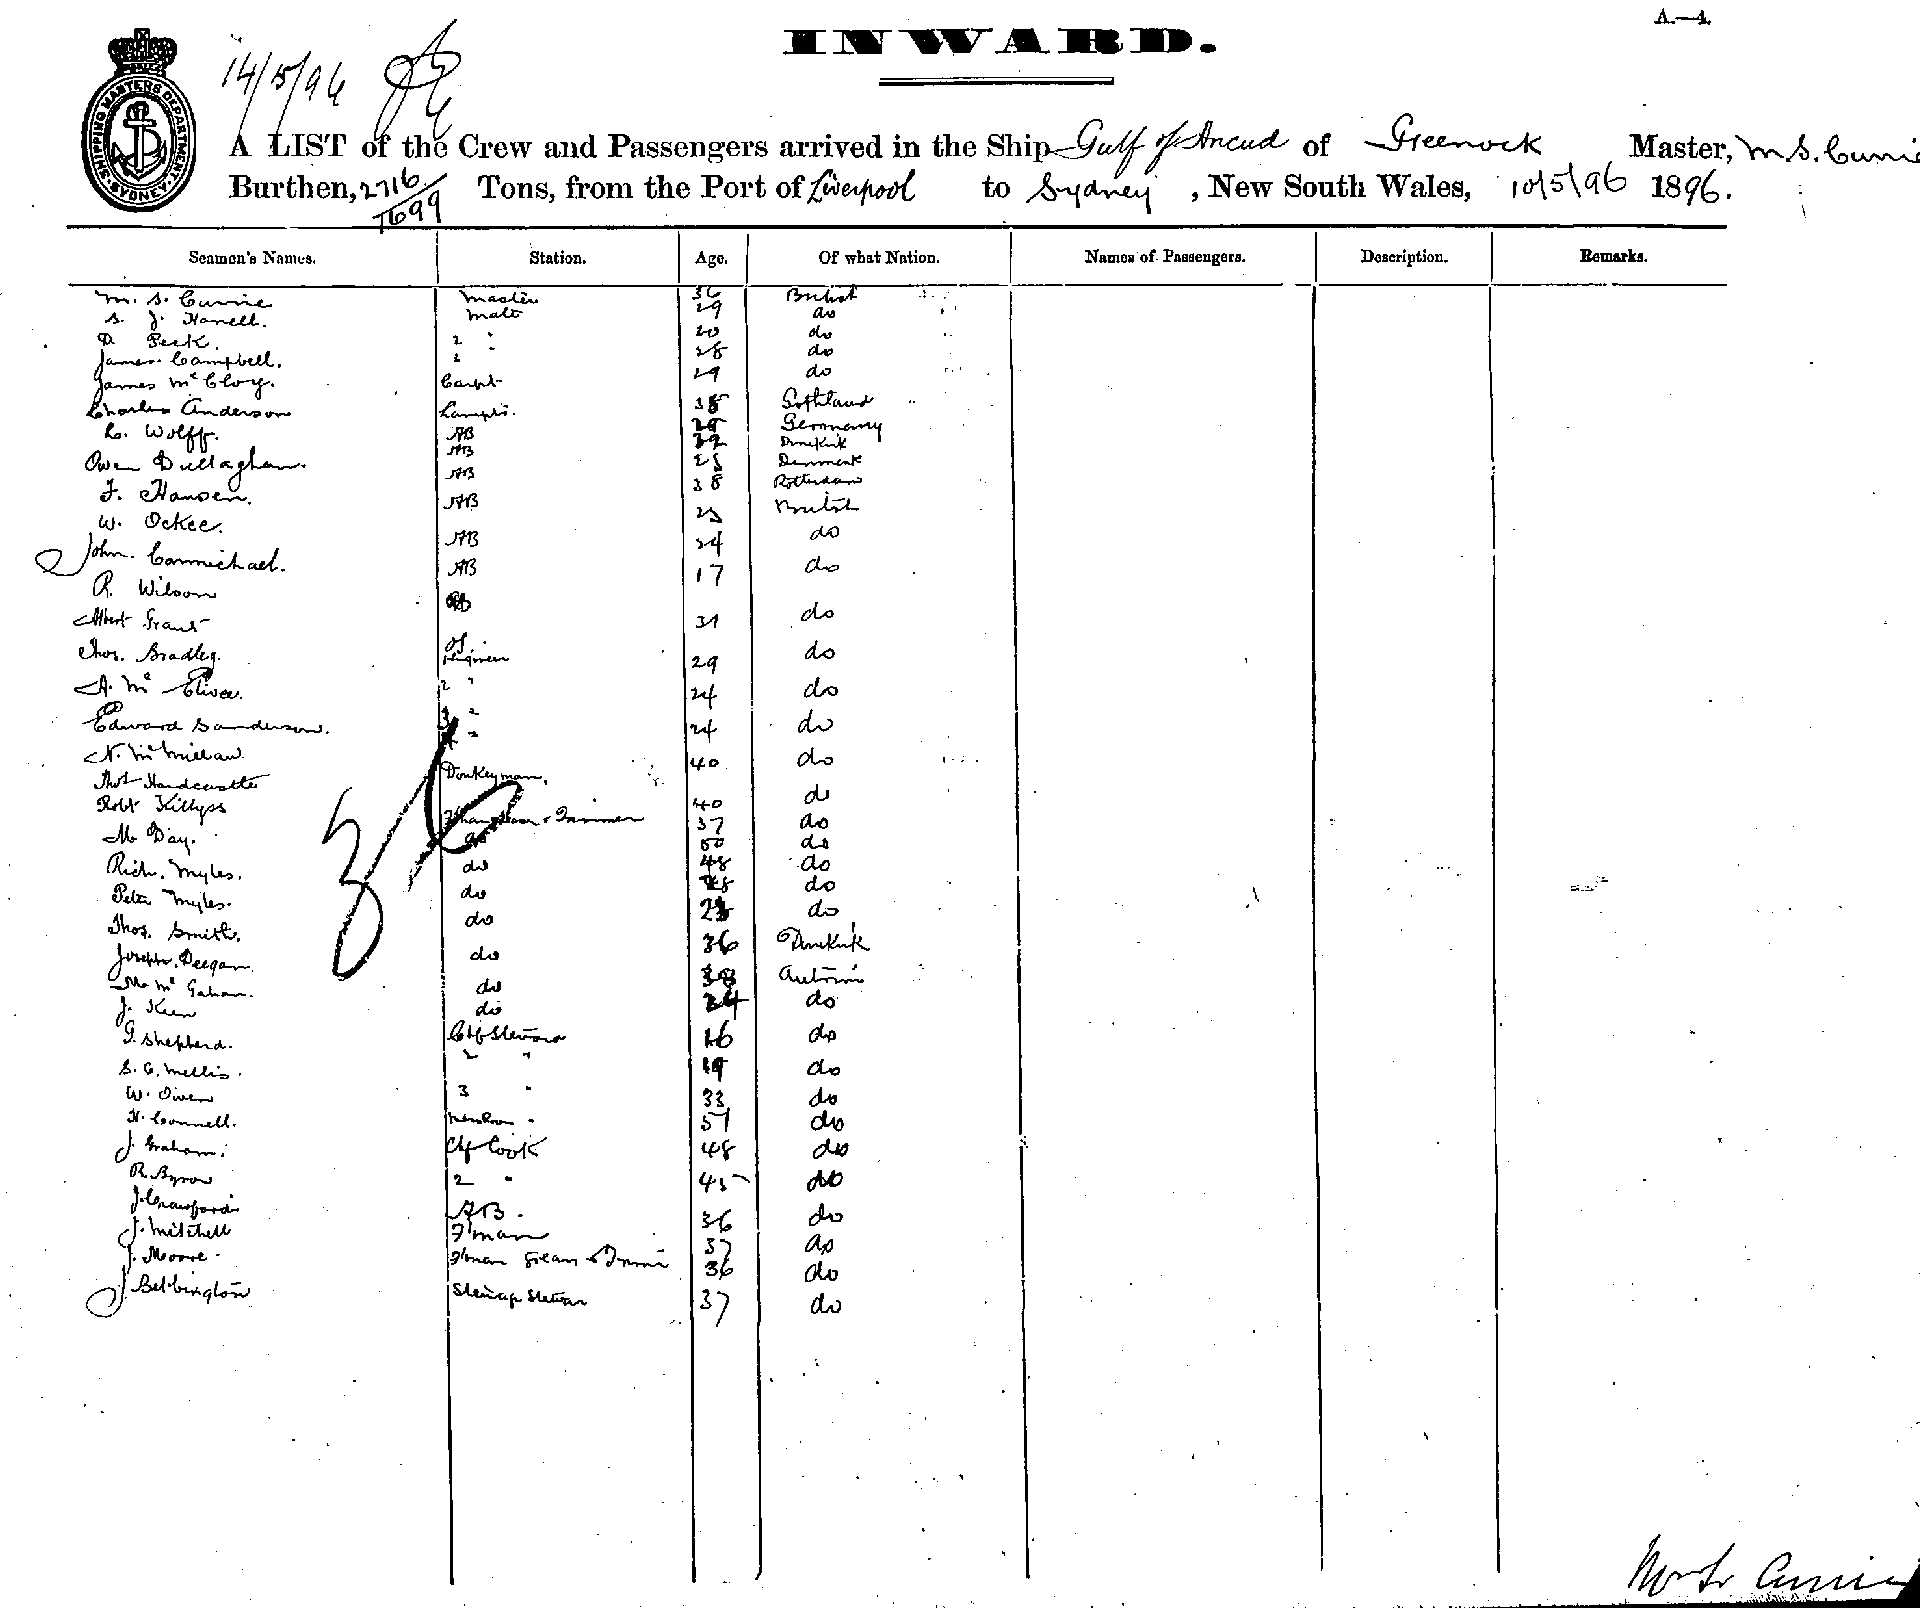 A.—4.
INWARD.
14/5/96
SHIPPING MASTERS DEPARTMENT. SYDNEY.
A LIST of the Crew and Passengers arrived in the Ship Gulf of Ancud of Greenock Master, M S. Currie
Burthen, 2716/1699 Tons, from the Port of Liverpool to Sydney, New South Wales, 10/5/96 1896.
Seamen's Names. Station. Age. Of what Nation. Names of Passengers. Description. Remarks.
M. S. Currie Master 36 British
S. J. Harrell. Mate 29 do
D Peck. 2 " 20 do
James Campbell. 3 " 28 do
James McCloy. Carpt 29 do
Charles Anderson Lamps. 38 Gothland
C. Wolff. AB Germany
Owen Dullaghan. AB 32
F. Hansen. AB 25 Denmark
W. Ockee. AB 38 Rotterdam
John Carmichael. AB 23 British
R. Wilson AB 24 do
Albert Grant 17 do
Thos. Bradley. 31 do
A. Mc Engineer 29 do
Edward Sanderson. 2 " 24 do
N. McMillan 3 " 24 do
Thos Hardcastle 4 " 40 do
Robt Donkeyman. 40 do
M Day. Trimmer 37 do
Rich. Myles. do 50 do
Peter Myles. do 48 do
Thos. Smith. do do
Joseph. Deegan. do do
Mc Gahan. do 36
J. Keen do
G. Shepherd. do do
S. C. Mellis. Chf Steward 16 do
W. Owen 2 " 19 do
H. Connell. 3 " 33 do
J. Graham. 51 do
R. Byron Chf Cook 48 do
J. Crawford 2 " 45 do
J. Mitchell AB. 36 do
J. Moore. F'man 37 do
J Bebbington F'man 36 do
37 do
36
Currie